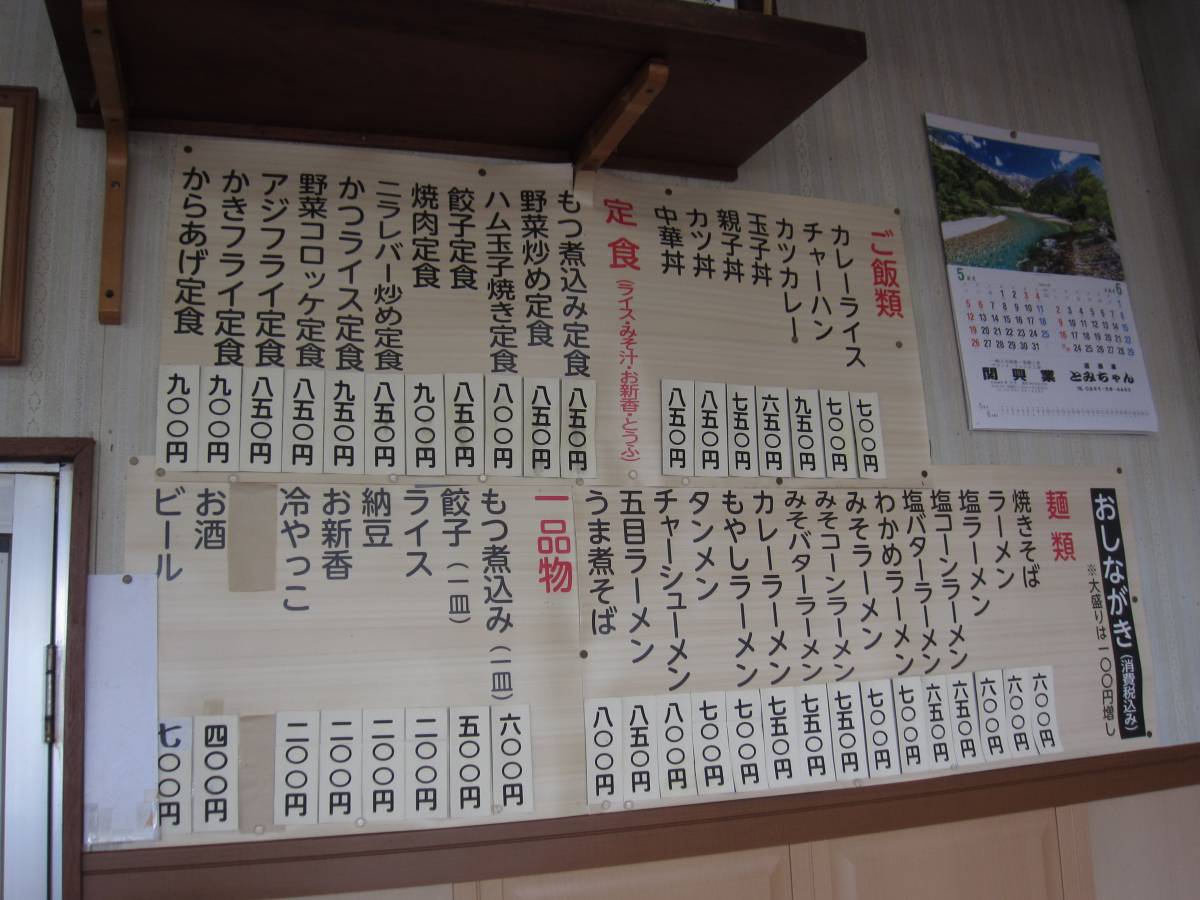 おしながき(消費税込み)
※大盛りは一〇〇円増し
麺類
焼きそば 六〇〇円
ラーメン 六〇〇円
塩ラーメン 六〇〇円
塩コーンラーメン 六五〇円
塩バターラーメン 六五〇円
わかめラーメン 七〇〇円
みそラーメン 七〇〇円
みそコーンラーメン 七五〇円
みそバターラーメン 七五〇円
カレーラーメン 七五〇円
もやしラーメン 七〇〇円
タンメン 七〇〇円
チャーシューメン 八〇〇円
五目ラーメン 八五〇円
うま煮そば 八〇〇円
ご飯類
カレーライス 七〇〇円
チャーハン 七〇〇円
カツカレー 九五〇円
玉子丼 六五〇円
親子丼 七五〇円
カツ丼 八五〇円
中華丼 八五〇円
定食(ライス・みそ汁・お新香・とうふ)
もつ煮込み定食 八五〇円
野菜炒め定食 八五〇円
ハム玉子焼き定食 八〇〇円
餃子定食 八五〇円
焼肉定食 九〇〇円
ニラレバー炒め定食 八五〇円
かつライス定食 九五〇円
野菜コロッケ定食 八五〇円
アジフライ定食 八五〇円
かきフライ定食 九〇〇円
からあげ定食 九〇〇円
一品物
もつ煮込み(一皿) 六〇〇円
餃子(一皿) 五〇〇円
ライス 二〇〇円
納豆 二〇〇円
お新香 二〇〇円
冷やっこ 二〇〇円
お酒 四〇〇円
ビール 七〇〇円
5
6
関興業 とみちゃん